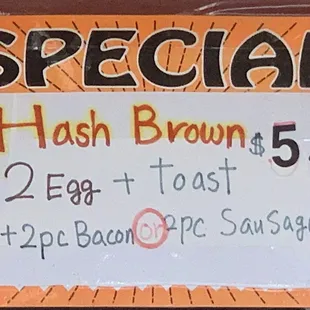 SPECIAL
Hash Brown $5.
2 Egg + Toast
+2pc Bacon or 2pc Sausag